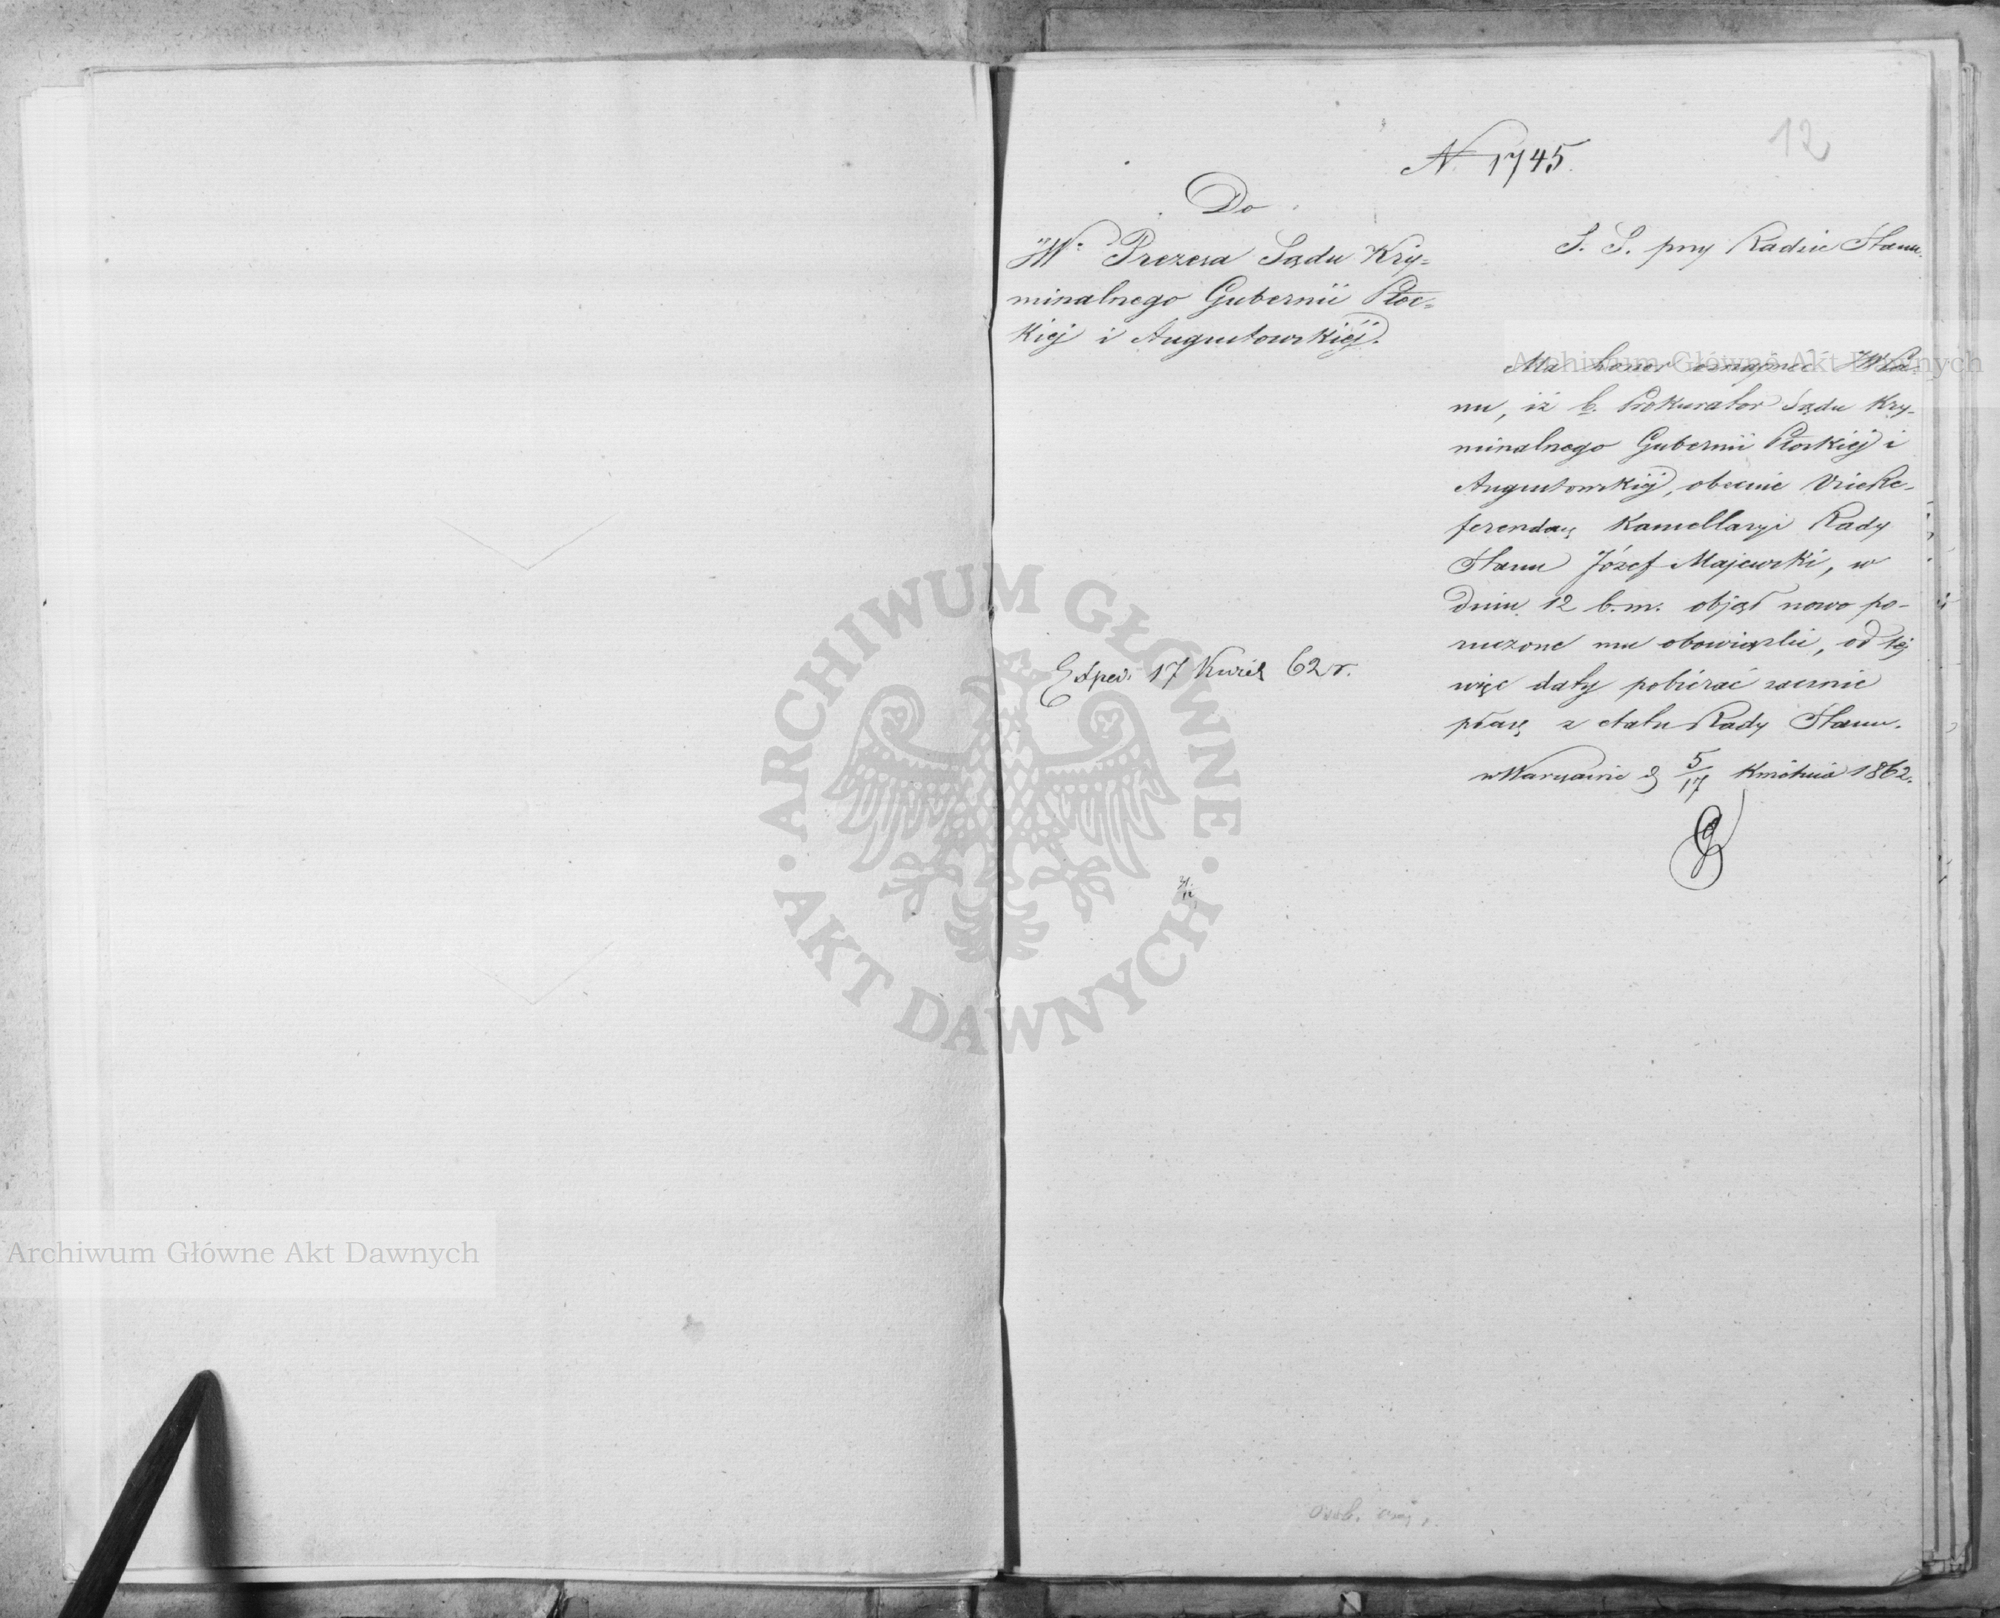 12
N 1745.
Do
JW. Prezesa Sądu Kry-
minalnego Gubernii Płoc-
kiej i Augustowskiej.
S. S. przy Radzie Stanu.
Ma honor oznajmić JW Pa-
nu, iż b. Prokurator Sądu Kry-
minalnego Gubernii Płockiej i
Augustowskiej, obecnie Vice Re-
ferendarz Kancellaryi Rady
Stanu Józef Majewski, w
dniu 12 b.m. objął nowo po-
ruczone mu obowiązki, od tej
więc daty pobierać zacznie
płacę z etatu Rady Stanu.
w Warszawie d 5/17 Kwietnia 1862.
Exped. 17 Kwiet 62 r.
ARCHIWUM GŁÓWNE AKT DAWNYCH
Archiwum Główne Akt Dawnych
Archiwum Główne Akt Dawnych